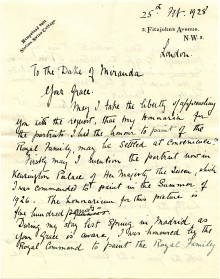 25th Feb. 1928
2, Fitzjohn's Avenue.
N.W.3.
London.
To the Duke of Miranda
Your Grace:
May I take the liberty of approaching
you with the request, that my honoraria for
the portraits I had the honour to paint of the
Royal Family, may be settled at convenience.
Firstly may I mention the portrait now in
Kensington Palace of Her Majesty the Queen, which
I was commanded to paint in the Summer of
1926. The honorarium for this picture is
five hundred
During my stay last Spring in Madrid, as
your Grace is aware, I was honoured by the
Royal Command to paint the Royal Family